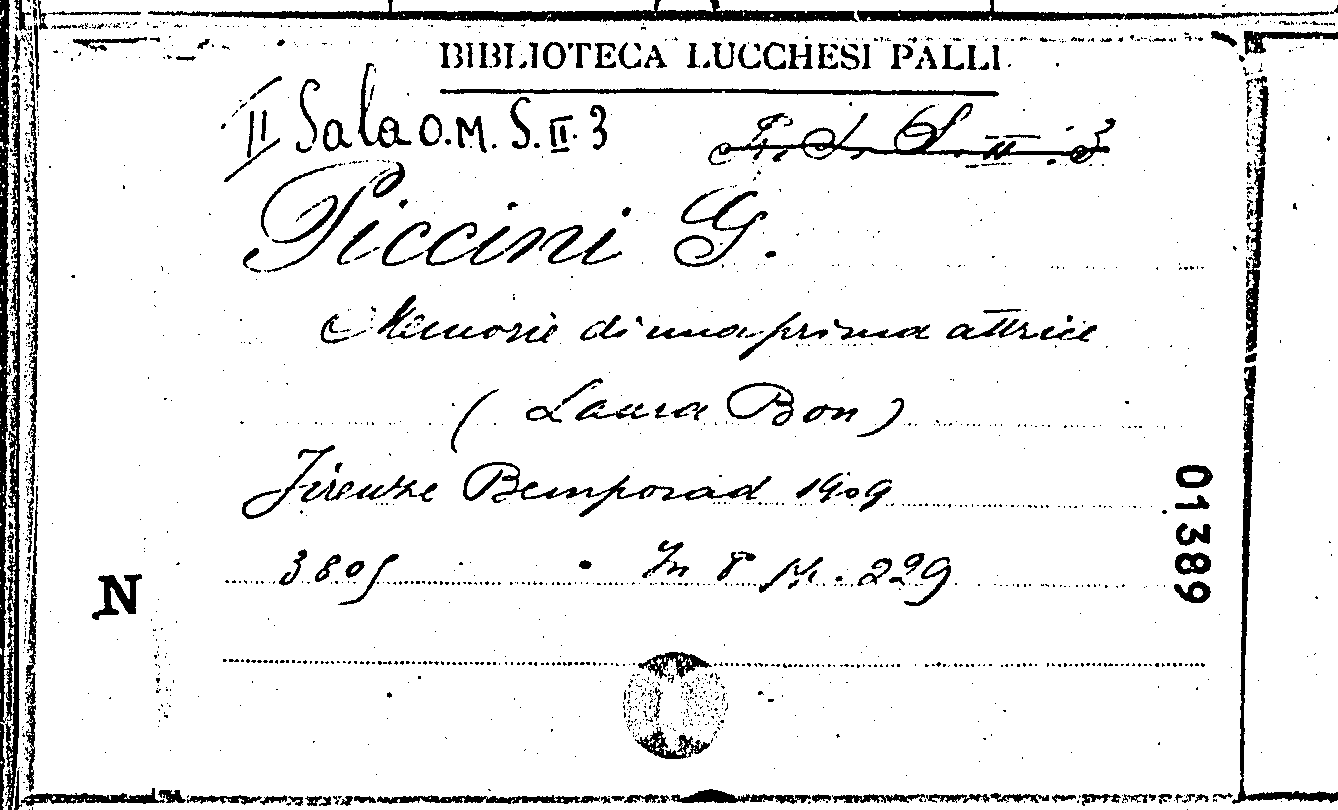 BIBLIOTECA LUCCHESI PALLI
II Sala O.M. S. II. 3
S. II. 3
Piccini G.
Memorie di una prima attrice
( Laura Bon )
Firenze Bemporad 1909
3805 In 8° pp. 229
01389
N